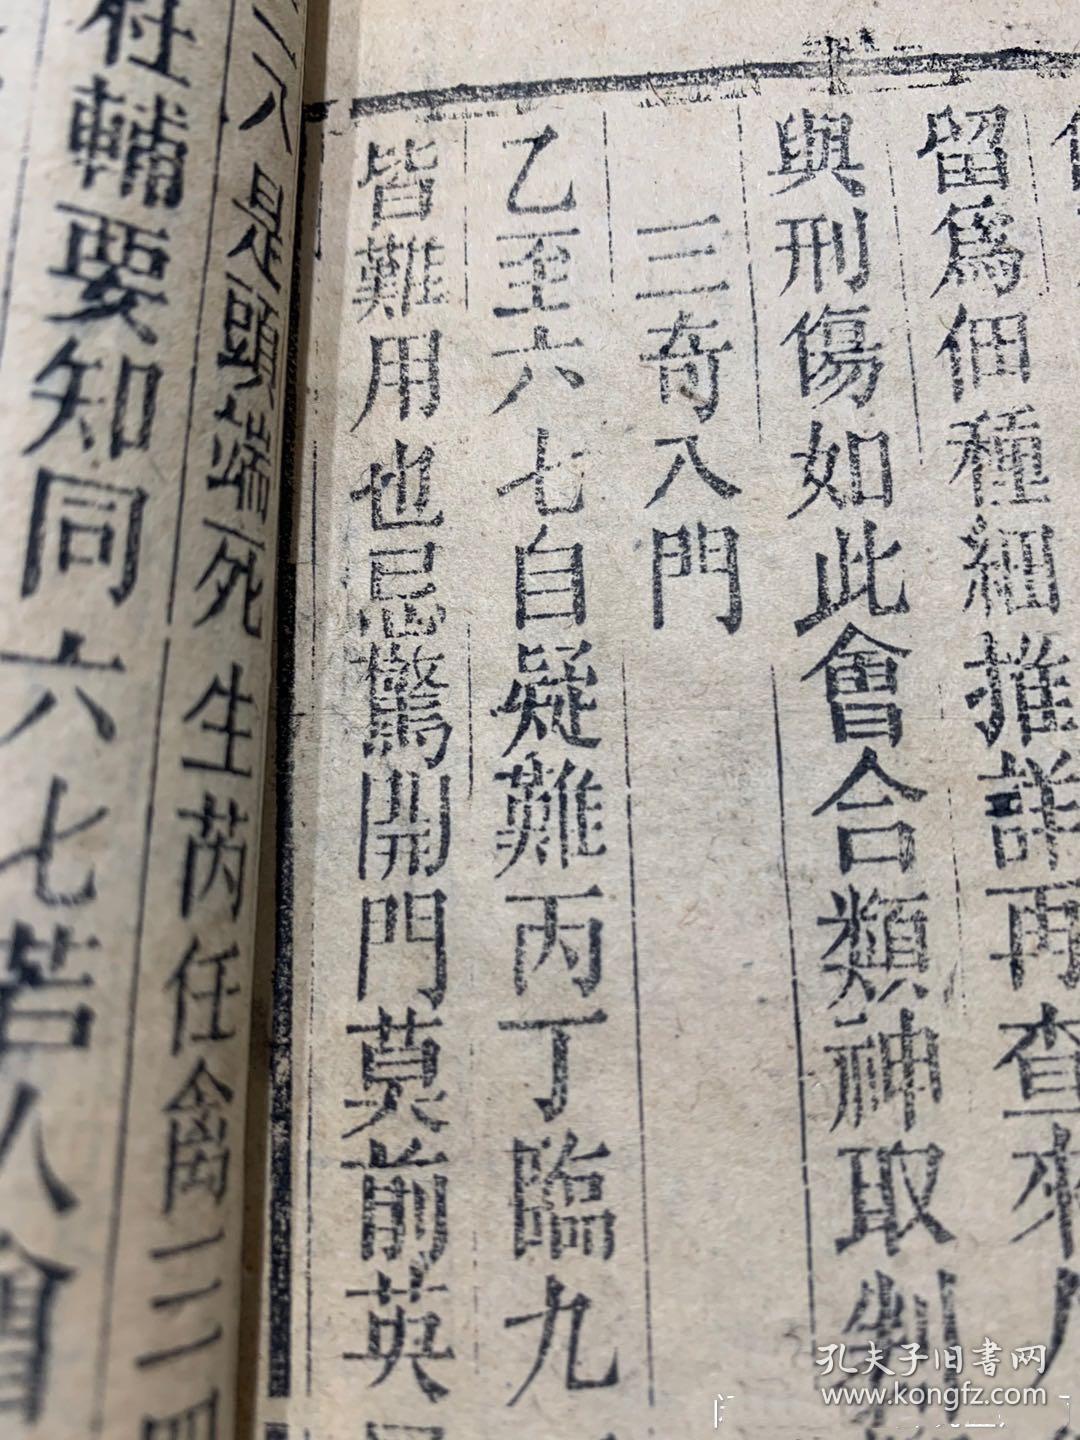 留爲佃種細推詳再查來人
與刑傷如此會合類神取制
三奇八門
乙至六七自疑難丙丁臨九
皆難用也忌驚開門莫前英
二八是頭端死生芮任禽三四
輔要知同六七苦人
孔夫子旧書网
www.kongfz.com